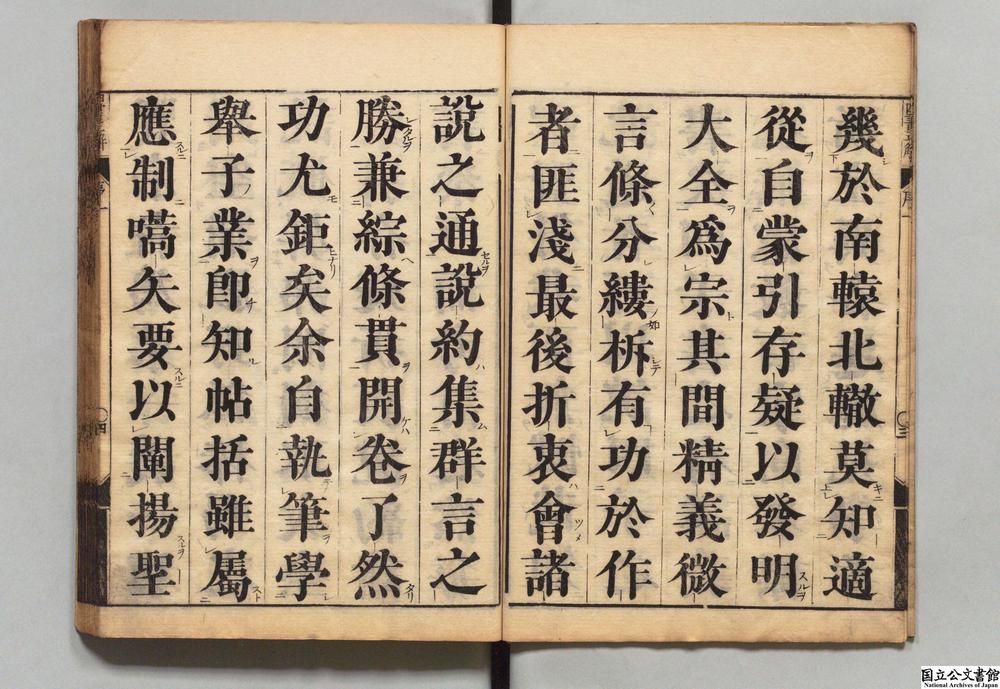 幾於南轅北轍莫知適
從自蒙引存疑以發明
大全爲宗其間精義微
言條分縷柝有功於作
者匪淺最後折衷會諸
說之通說約集群言之
勝兼綜條貫開卷了然
功尤鉅矣余自執筆學
舉子業卽知帖括雖屬
應制嚆矢要以闡揚聖
国立公文書館
National Archives of Japan